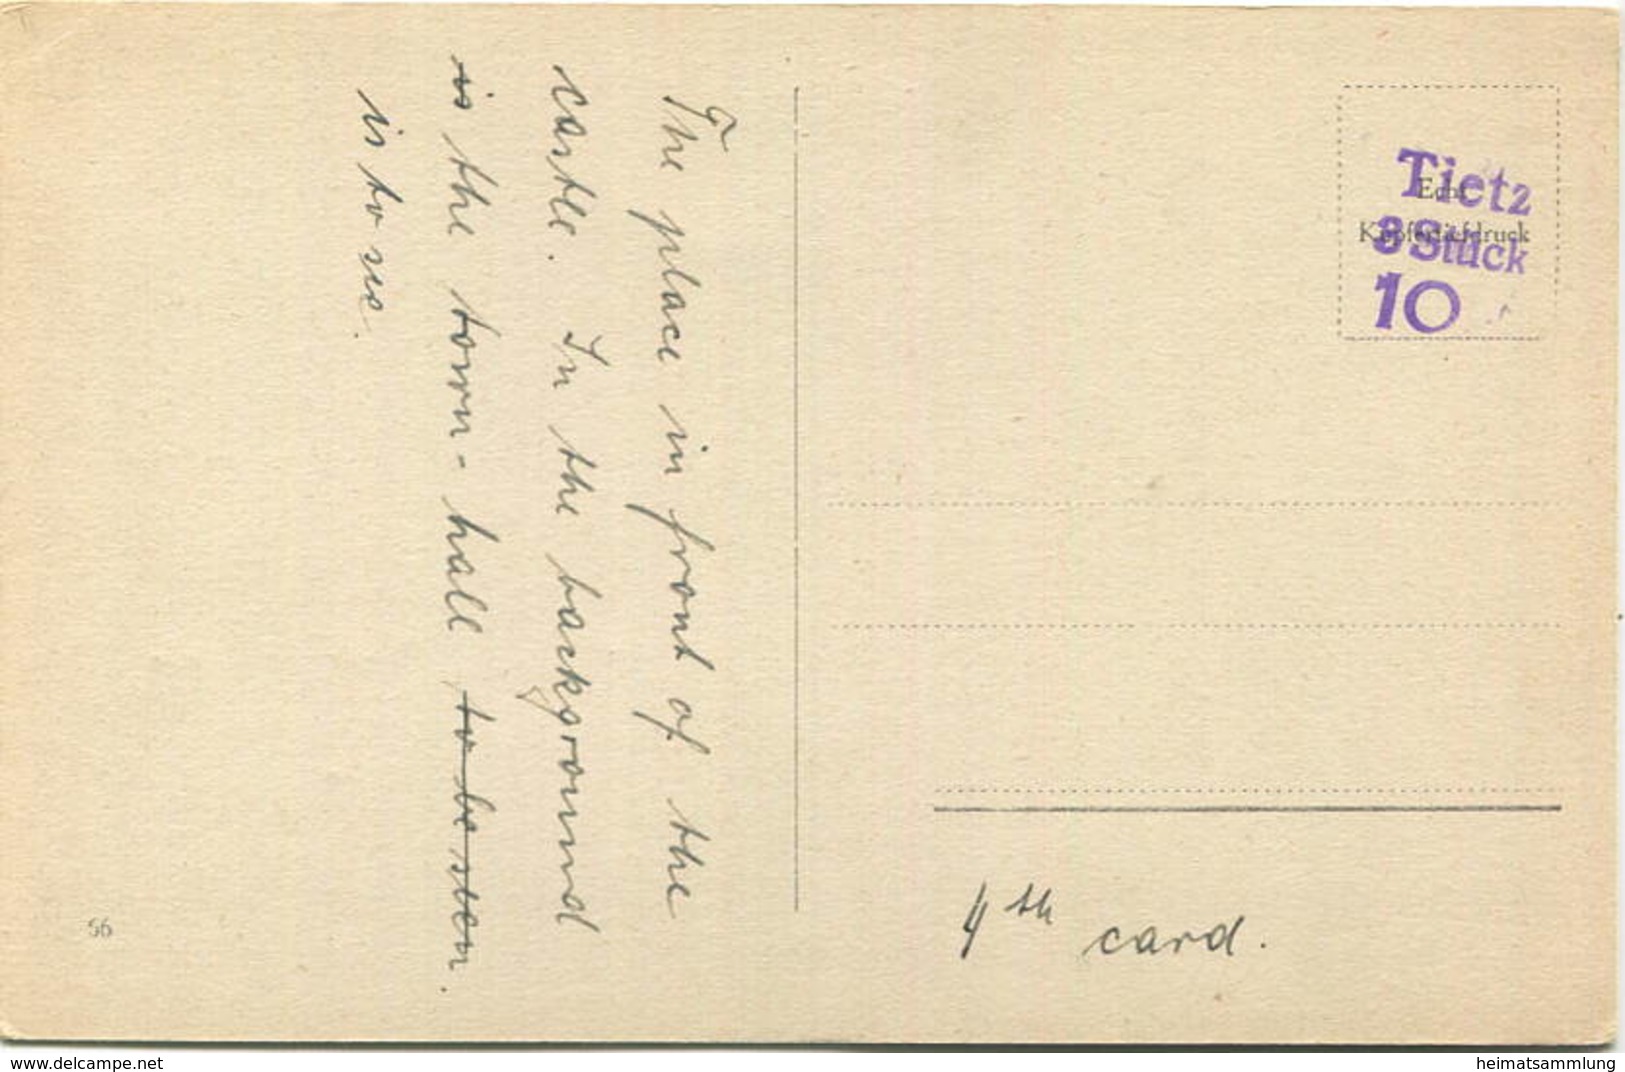 The place in front of the
castle. In the background
is the town-hall to be seen.
is to see.
Echt
Kupfertiefdruck
Tietz
8 Stück
10
4th card.
66
www.delcampe.net
heimatsammlung